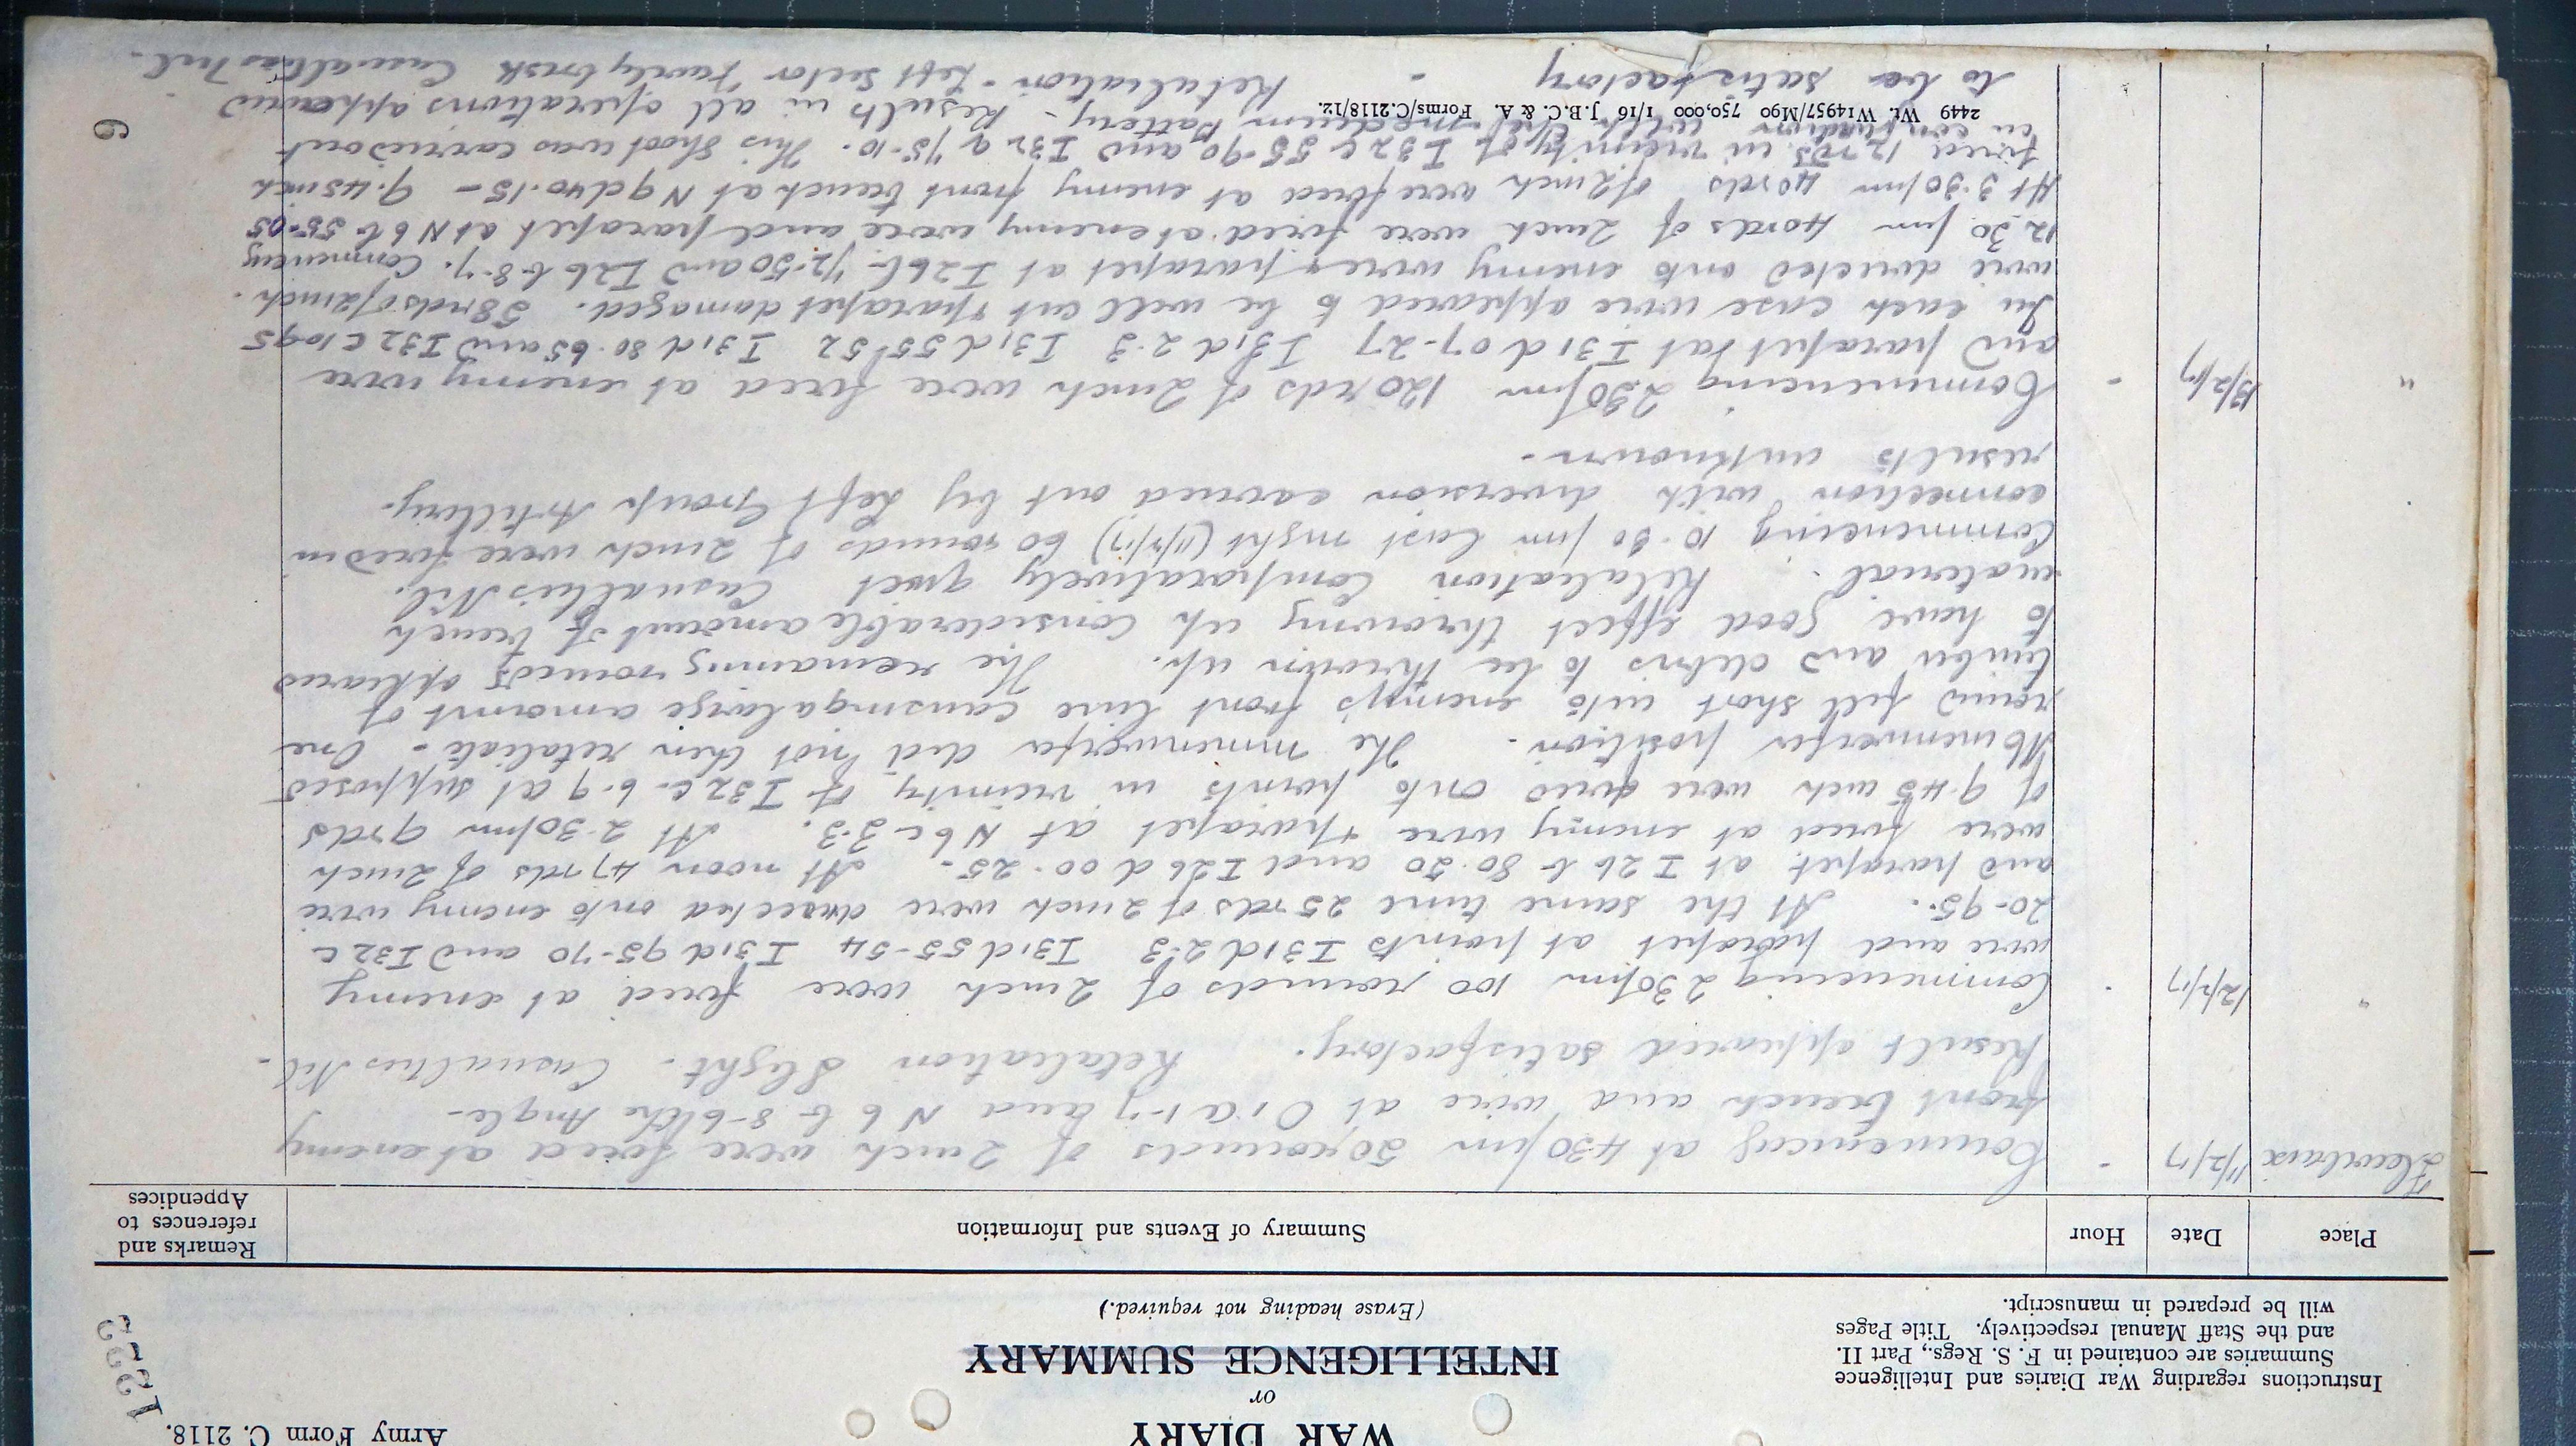 Army Form C. 2118.
1222
WAR DIARY
or
INTELLIGENCE SUMMARY
(Erase heading not required.)
Instructions regarding War Diaries and Intelligence
Summaries are contained in F. S. Regs., Part II.
and the Staff Manual respectively. Title Pages
will be prepared in manuscript.
Place Date Hour Summary of Events and Information Remarks and
references to
Appendices
Fleurbaix 11/2/17 - Commencing at 4.30 pm 50 rounds of 2 inch were fired at enemy
front trench and wire at O1a 1-7 and N6 b 8-6 (The Angle -
Result appeared satisfactory. Retaliation Slight - Casualties Nil -
" 12/2/17 - Commencing 2.30 pm 100 rounds of 2 inch were fired at enemy
wire and parapet at points I31d 2-3 I31d 55-54 I31d 95-70 and I32c
20-95. At the same time 25 rds of 2 inch were directed onto enemy wire
and parapet at I26 b 80.50 and I26 d 00-25 - At noon 47 rds of 2 inch
were fired at enemy wire + parapet at N6c 3-3. At 2.30 pm 9 rds
of 9.45 inch were fired onto points in vicinity of I32c 6-9 at supposed
Minenwerfer position - The minenwerfer did not then retaliate - One
round fell short into enemy's front line causing a large amount of
timber and debris to be thrown up. The remaining rounds appeared
to have good effect throwing up considerable amount of trench
material. Retaliation comparatively quiet Casualties Nil.
Commencing 10.30 pm last night (11/2/17) 60 rounds of 2 inch were fired in
connection with diversion carried out by Left Group Artillery.
results unknown -
" 13/2/17 - Commencing 2.30 pm 120 rds of 2 inch were fired at enemy wire
and parapet at I31d 07-27 I31d 2-3 I31d 55-52 I31d 80-65 and I32c 10-95
In each case wire appeared to be well cut + parapet damaged. 58 rds of 2 inch.
were directed onto enemy wire + parapet at I26b 72-50 and I26 b 8-7. Commencing
12.30 pm 40 rds of 2 inch were fired at enemy wire and parapet at N6 b 55-05
At 3.30 pm 40 rds of 2 inch were fired at enemy front trench at N9d 40.15 - 9.45 inch
fired 12 rds in vicinity of I32c 55-90 and I32a 75-10. This shoot was carried out
in conjunction with Medium Battery - Results in all operations appeared
2449 Wt. W14957/M90 750,000 1/16 J.B.C. & A. Forms/C.2118/12.
to be satisfactory - Retaliation - Left Sector Fairly brisk Casualties Nil -
6